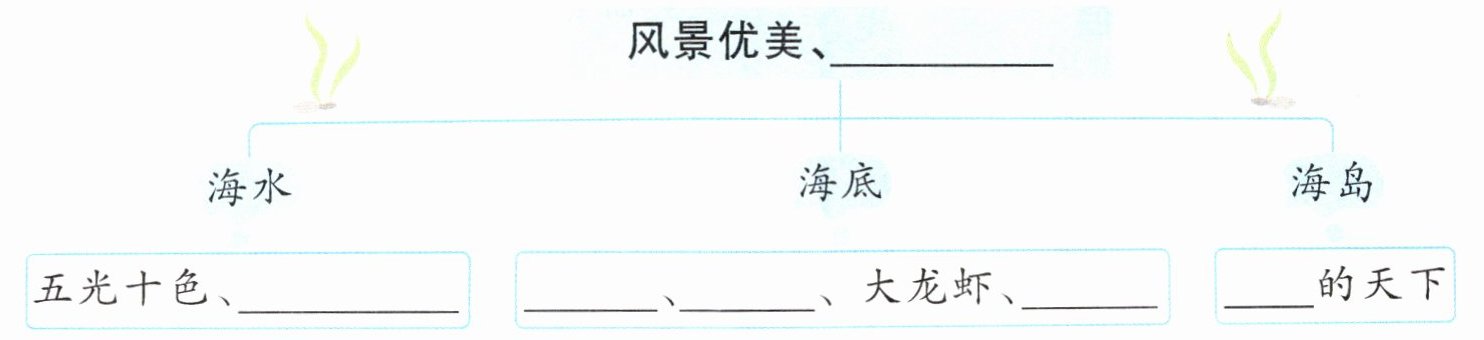 风景优美、__________
海水 海底 海岛
五光十色、__________ ______、______、大龙虾、______ ____的天下